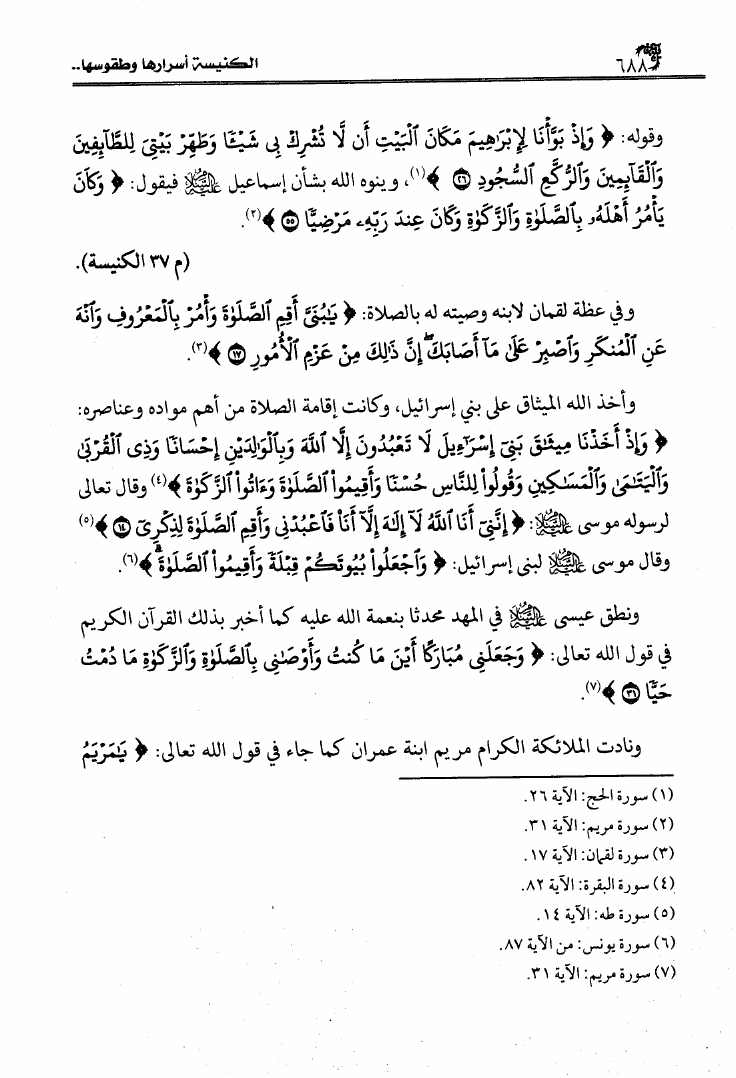 ٦٨٨
الكنيسة أسرارها وطقوسها..
وقوله: ﴿ وَإِذْ بَوَّأْنَا لِإِبْرَٰهِيمَ مَكَانَ ٱلْبَيْتِ أَن لَّا تُشْرِكْ بِى شَيْـًٔا وَطَهِّرْ بَيْتِىَ لِلطَّآئِفِينَ
وَٱلْقَآئِمِينَ وَٱلرُّكَّعِ ٱلسُّجُودِ ۝٢٦ ﴾(١)، وينوه الله بشأن إسماعيل عليه السلام فيقول: ﴿ وَكَانَ
يَأْمُرُ أَهْلَهُۥ بِٱلصَّلَوٰةِ وَٱلزَّكَوٰةِ وَكَانَ عِندَ رَبِّهِۦ مَرْضِيًّا ۝٥٥ ﴾(٢).
(م ٣٧ الكنيسة).
وفي عظة لقمان لابنه وصيته له بالصلاة: ﴿ يَـٰبُنَىَّ أَقِمِ ٱلصَّلَوٰةَ وَأْمُرْ بِٱلْمَعْرُوفِ وَٱنْهَ
عَنِ ٱلْمُنكَرِ وَٱصْبِرْ عَلَىٰ مَآ أَصَابَكَ ۖ إِنَّ ذَٰلِكَ مِنْ عَزْمِ ٱلْأُمُورِ ۝١٧ ﴾(٣).
وأخذ الله الميثاق على بني إسرائيل، وكانت إقامة الصلاة من أهم مواده وعناصره:
﴿ وَإِذْ أَخَذْنَا مِيثَـٰقَ بَنِىٓ إِسْرَٰٓءِيلَ لَا تَعْبُدُونَ إِلَّا ٱللَّهَ وَبِٱلْوَٰلِدَيْنِ إِحْسَانًا وَذِى ٱلْقُرْبَىٰ
وَٱلْيَتَـٰمَىٰ وَٱلْمَسَـٰكِينِ وَقُولُوا۟ لِلنَّاسِ حُسْنًا وَأَقِيمُوا۟ ٱلصَّلَوٰةَ وَءَاتُوا۟ ٱلزَّكَوٰةَ ﴾(٤) وقال تعالى
لرسوله موسى عليه السلام: ﴿ إِنَّنِىٓ أَنَا ٱللَّهُ لَآ إِلَـٰهَ إِلَّآ أَنَا۠ فَٱعْبُدْنِى وَأَقِمِ ٱلصَّلَوٰةَ لِذِكْرِىٓ ۝١٤ ﴾(٥)
وقال موسى عليه السلام لبنى إسرائيل: ﴿ وَٱجْعَلُوا۟ بُيُوتَكُمْ قِبْلَةً وَأَقِيمُوا۟ ٱلصَّلَوٰةَ ۗ ﴾(٦).
ونطق عيسى عليه السلام في المهد محدثا بنعمة الله عليه كما أخبر بذلك القرآن الكريم
في قول الله تعالى: ﴿ وَجَعَلَنِى مُبَارَكًا أَيْنَ مَا كُنتُ وَأَوْصَـٰنِى بِٱلصَّلَوٰةِ وَٱلزَّكَوٰةِ مَا دُمْتُ
حَيًّا ۝٣١ ﴾(٧).
ونادت الملائكة الكرام مريم ابنة عمران كما جاء في قول الله تعالى: ﴿ يَـٰمَرْيَمُ
(١) سورة الحج: الآية ٢٦.
(٢) سورة مريم: الآية ٣١.
(٣) سورة لقمان: الآية ١٧.
(٤) سورة البقرة: الآية ٨٢.
(٥) سورة طه: الآية ١٤.
(٦) سورة يونس: من الآية ٨٧.
(٧) سورة مريم: الآية ٣١.